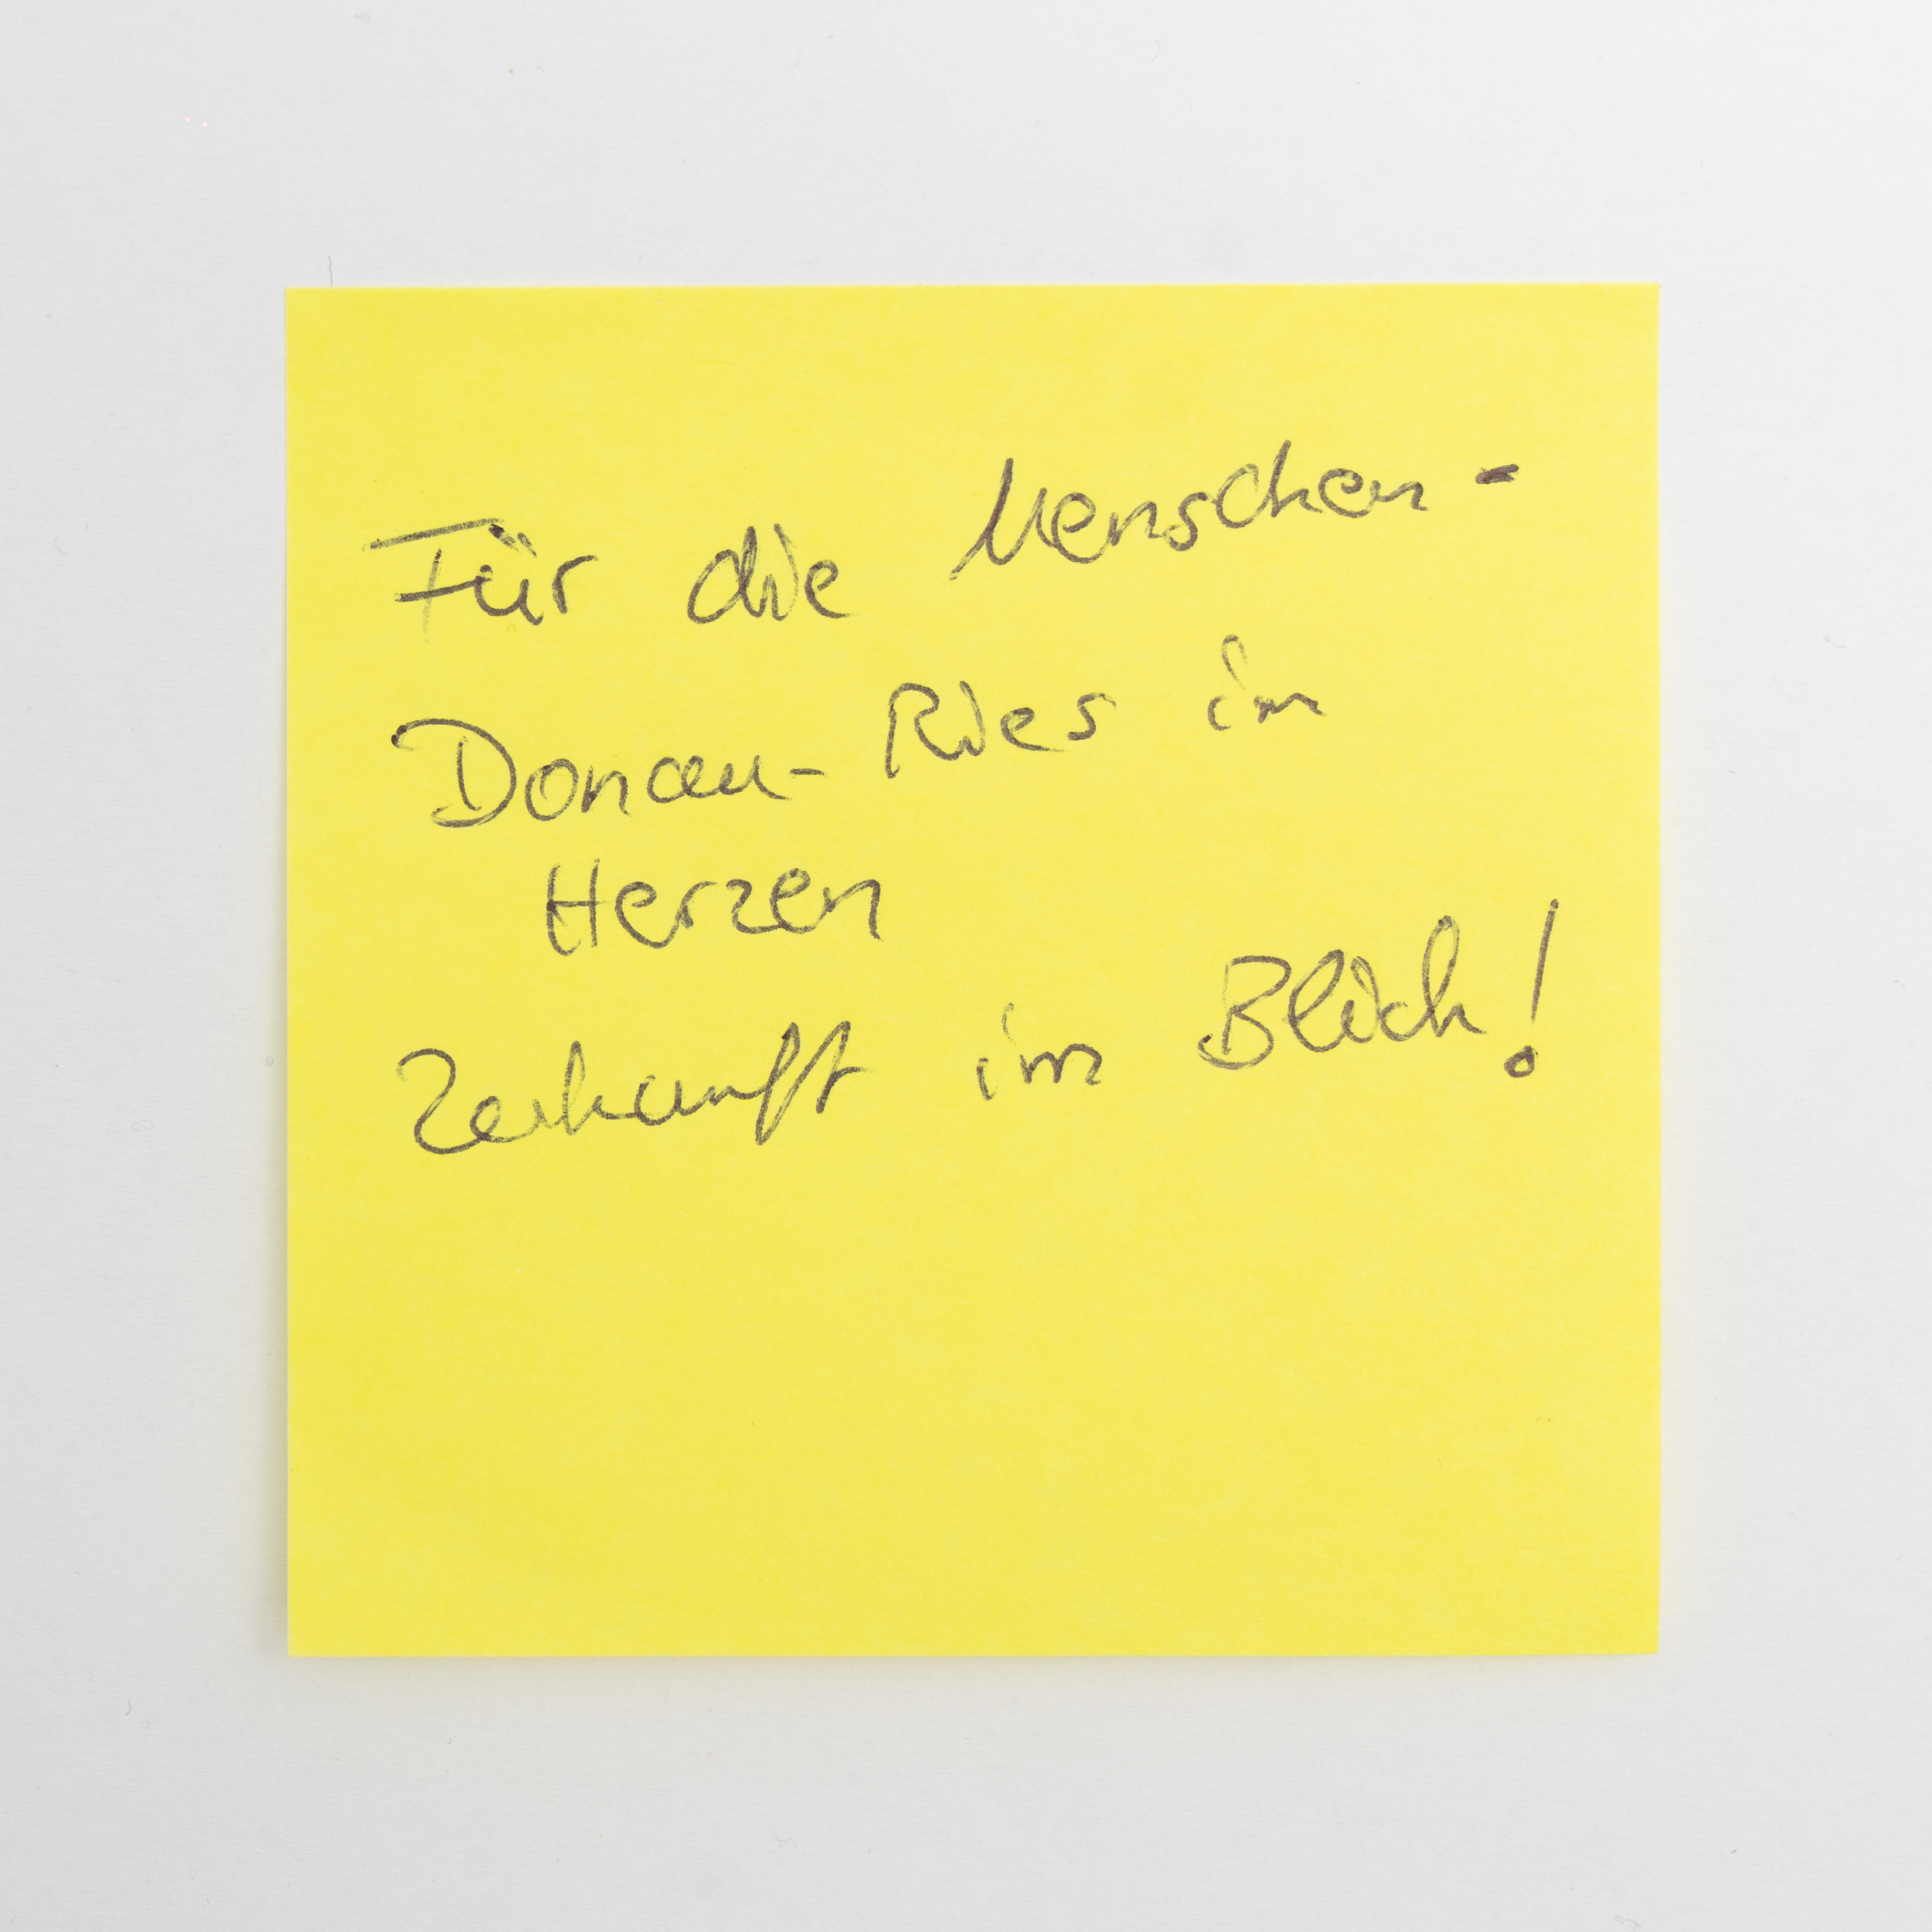 Für die Menschen -
Donau - Ries im
Herzen
Zukunft im Blick!